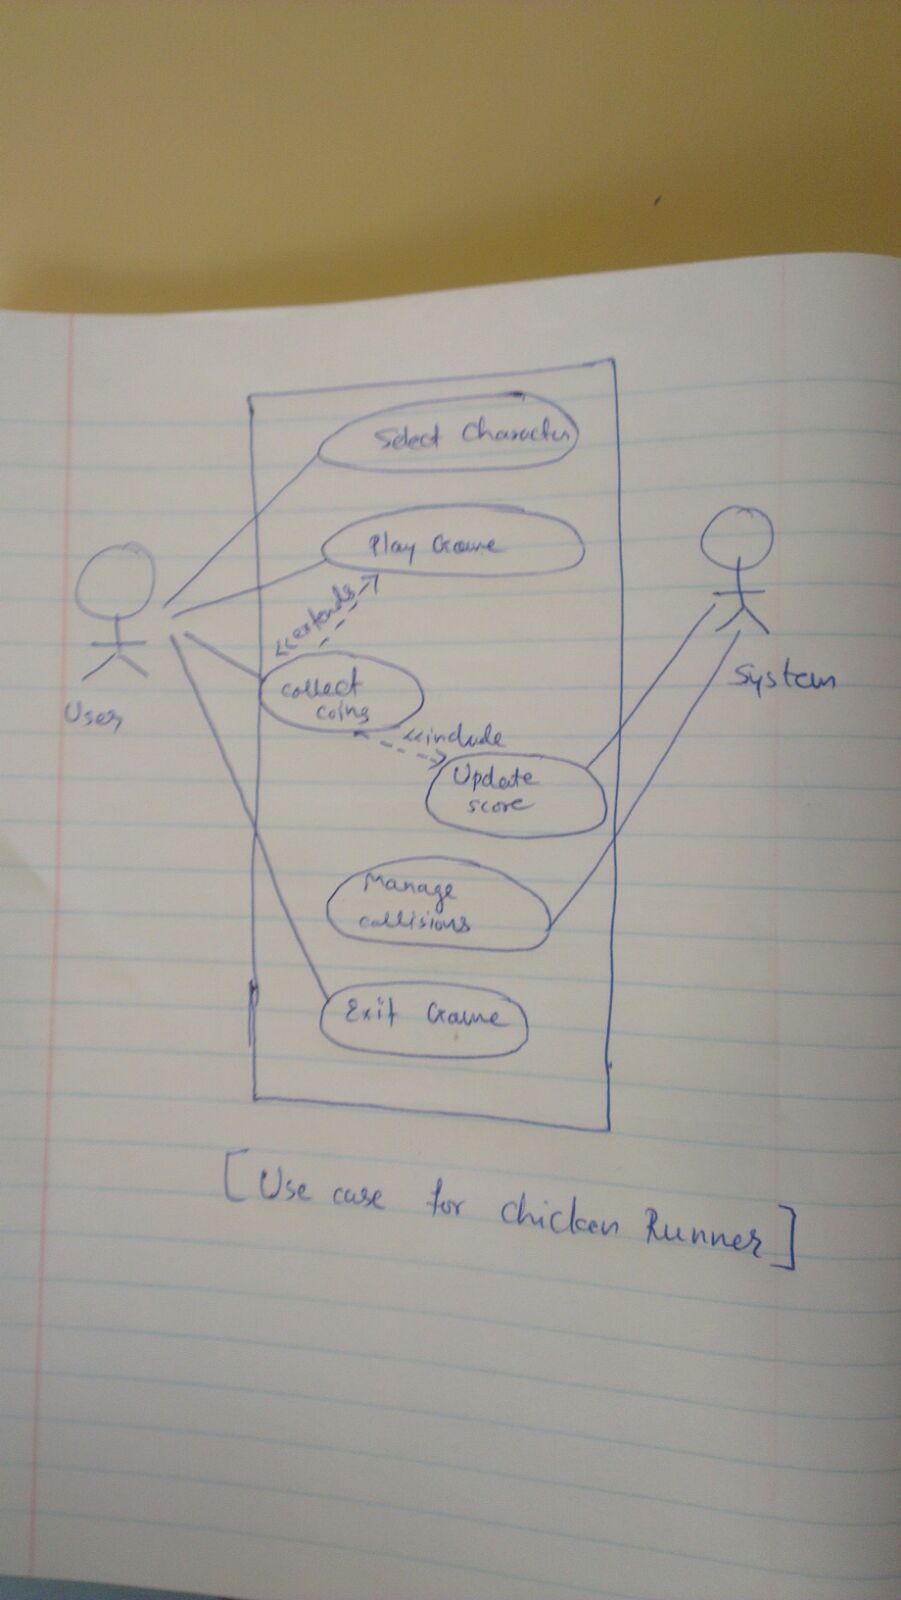 Select Character
Play Game
<<extends
collect
coins
<<include
Update
score
Manage
collisions
Exit Game
User
System
[Use case for chicken Runner]